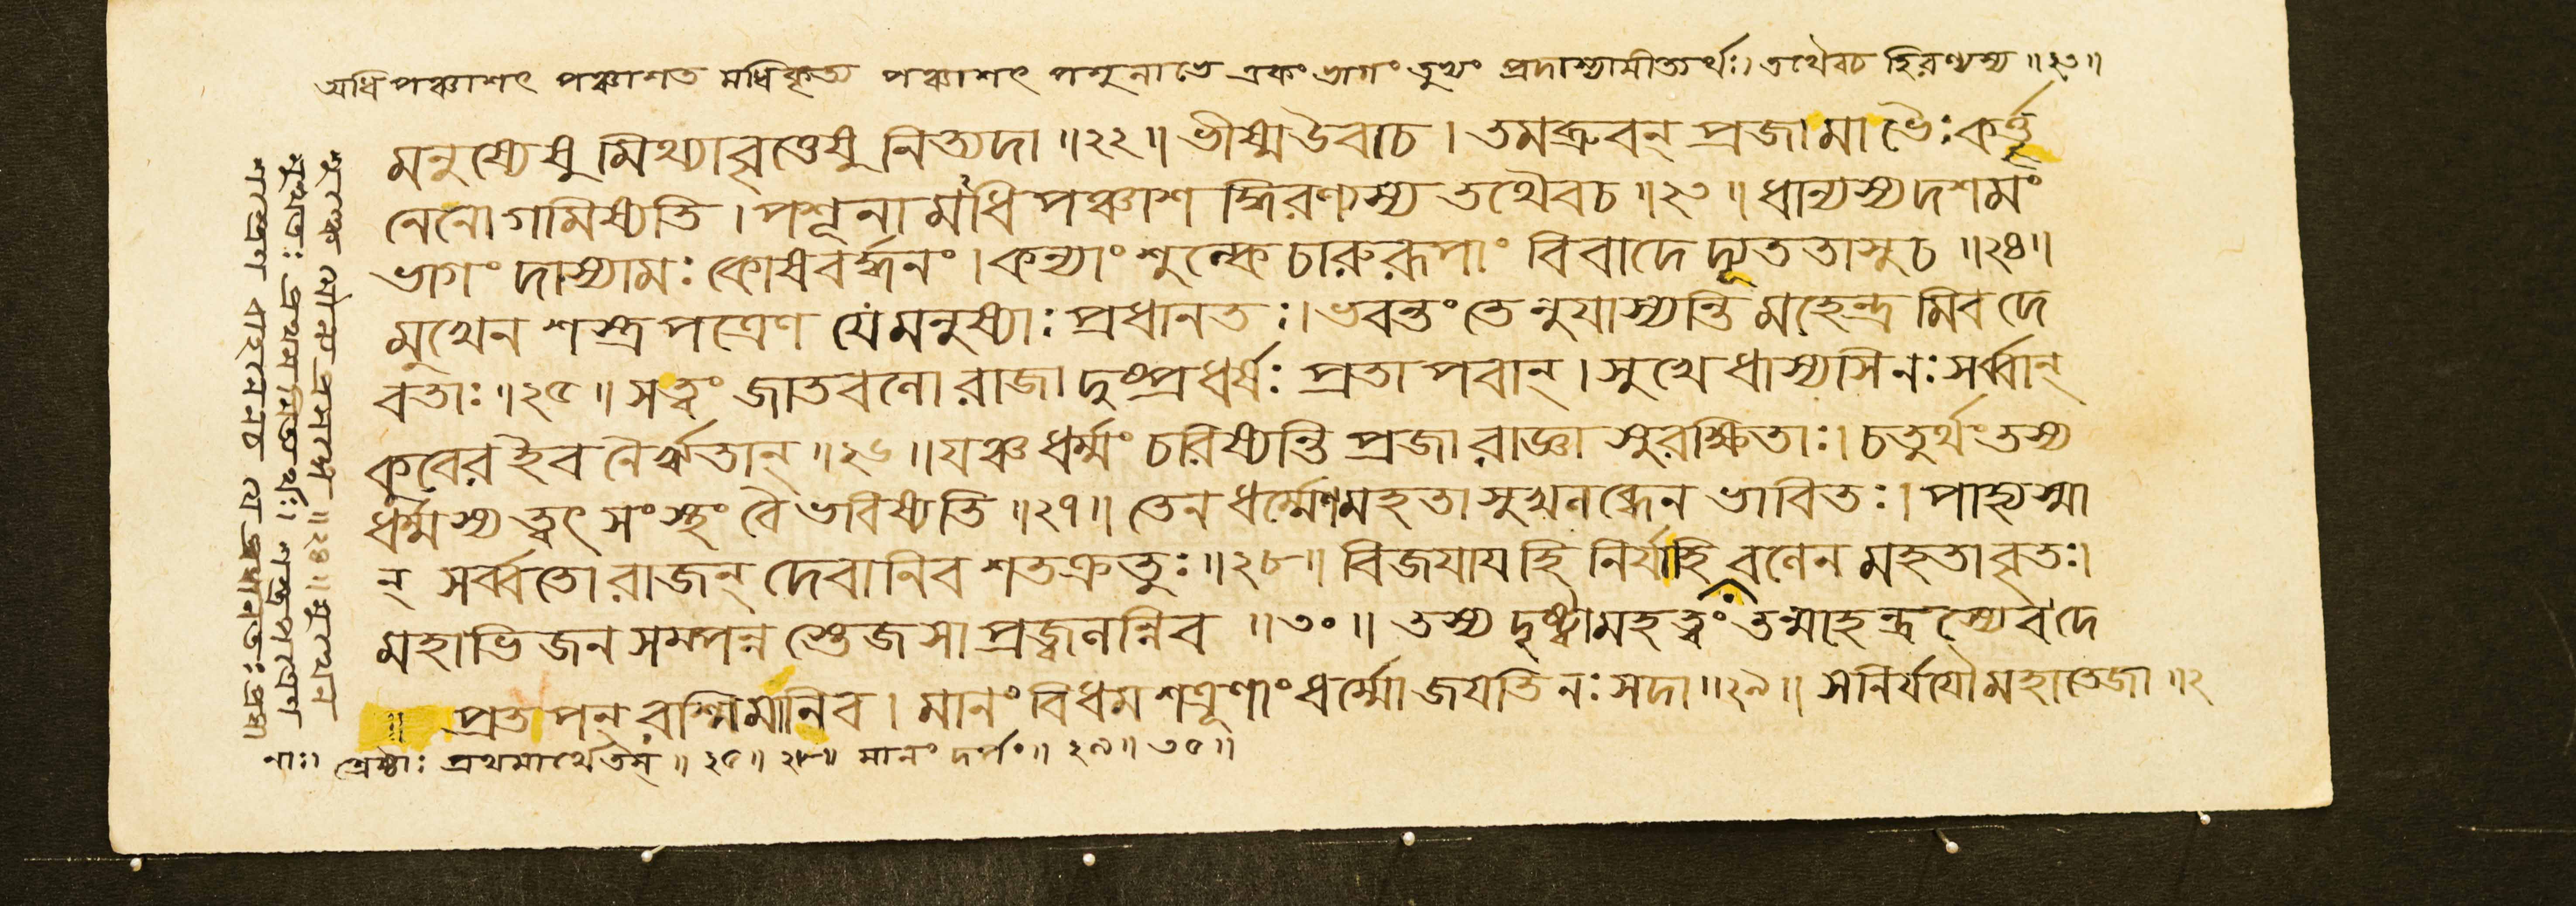 অধি পঞ্চাশৎ পঞ্চাশত মধিকৃত্য পঞ্চাশৎ পশুনাতে একং ভাগং তুভ্যং প্রদাস্যামীত্যর্থঃ। তথৈবচ হিরণ্যস্য ॥২৩॥
মনুষ্যেষু মিথ্যাবৃত্তেষু নিত্যদা ॥২২॥ ভীষ্মউবাচ । তমব্রুবন্ প্রজা মা ভৈঃ কর্তৃ
নেনো গামিষ্যতি । পশূনামধিপঞ্চাশ দ্ধিরণ্যস্য তথৈবচ ॥২৩॥ ধান্যস্য দশমং
ভাগং দাস্যামঃ কোষবর্দ্ধনং । কন্যাং শুল্কে চারুরূপাং বিবাদে দ্যূততাসুচ ॥২৪॥
মুখেন শস্ত্রপত্রেণ যে মনুষ্যাঃ প্রধানতঃ । ভবন্তং তেনুযাস্যন্তি মহেন্দ্রমিব দে
বতাঃ ॥২৫॥ সত্বং জাতবলো রাজা দুঃপ্রধর্ষঃ প্রতাপবান্ । সুখে ধাস্যসি নঃ সর্ব্বান্
কুবের ইব নৈর্ঋতান্ ॥২৬॥ যঞ্চ ধর্ম্মং চরিষ্যন্তি প্রজা রাজ্ঞা সুরক্ষিতাঃ । চতুর্থং তস্য
ধর্ম্মস্য ত্বৎ সংস্থং বৈ ভবিষ্যতি ॥২৭॥ তেন ধর্ম্মেণ মহতা সুখলব্ধেন ভাবিতঃ । পাহ্যস্মা
ন্ সর্ব্বতো রাজন্ দেবানিব শতক্রতুঃ ॥২৮॥ বিজয়ায হি নির্যাহি বলেন মহতা বৃতঃ।
মহাভিজন সম্পন্ন স্তেজসা প্রজ্বলন্নিব ॥৩০॥ তস্য দৃষ্ট্বা মহত্ত্বং তন্মাহেন্দ্রস্যেব দে
॥ প্রতাপন্ রশ্মিমানিব । মানং বিধম শত্রূণাং ধর্ম্মো জয়তি নঃ সদা ॥২৯॥ স নির্যযৌ মহাতেজা ॥২
নাঃ। শ্রেষ্ঠাঃ প্রথমার্থে তস্ ॥ ২৫॥ ২৮॥ মানং দর্পং॥ ২৯॥ ৩৫॥